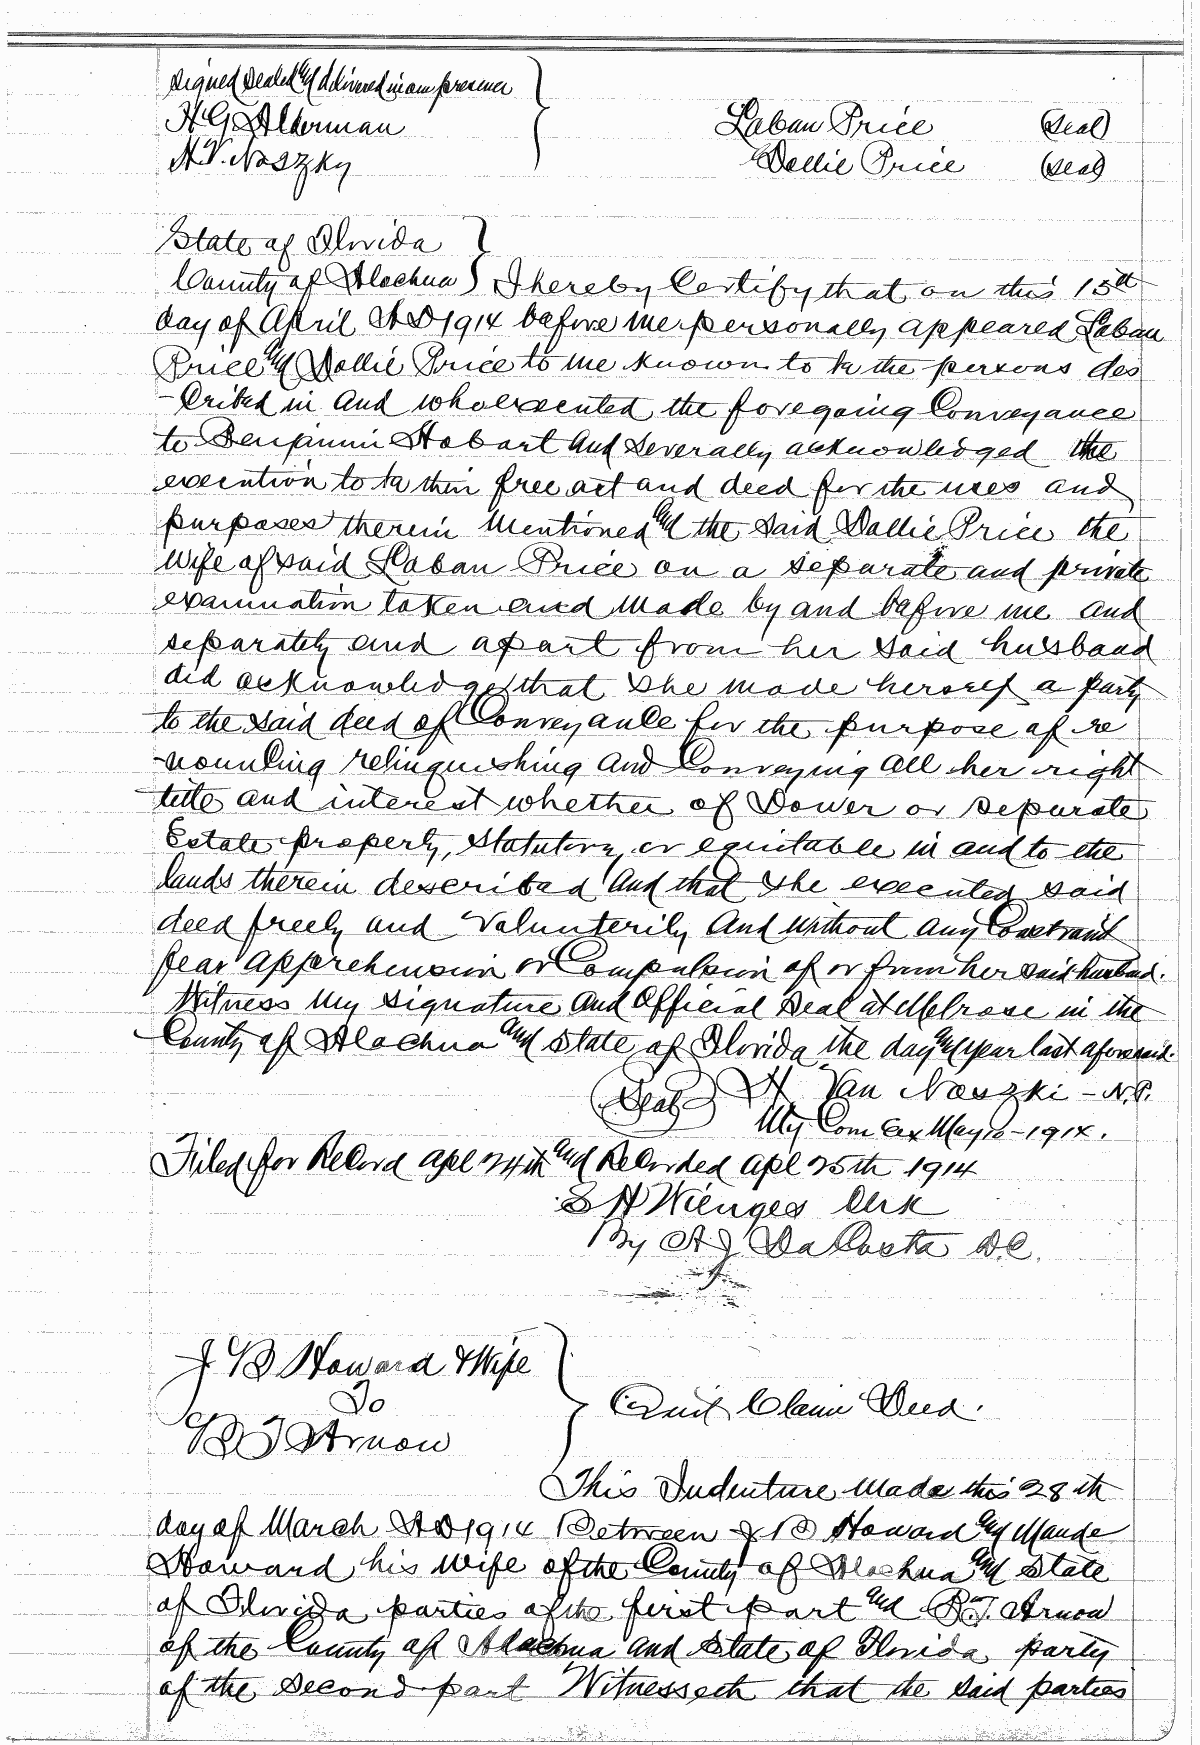 Signed Sealed and delivered in our presence
H G Alderman
Laban Price (Seal)
H.V. Noszky
Dollie Price (Seal)
State of Florida
County of Alachua } I hereby Certify that on this 15th
day of April AD 1914 before me personally appeared Laban
Price and Dollie Price to me known to be the persons des
-cribed in and who executed the foregoing Conveyance
to Benjamin Hobart and severally acknowledged the
execution to be their free act and deed for the uses and
purposes therein mentioned and the said Dollie Price the
wife of said Laban Price on a separate and private
examination taken and made by and before me and
separately and apart from her said husband
did acknowledge that she made herself a party
to the said deed of Conveyance for the purpose of re
-nouncing relinquishing and Conveying all her right
title and interest whether of Dower or separate
Estate property, Statutory or equitable in and to the
lands therein described and that she executed said
deed freely and Volunterily and without any Constraint
fear apprehension or Compulsion of or from her said husband.
Witness my signature and Official Seal at Melrose in the
County of Alachua and State of Florida the day and year last aforesaid.
(Seal) H Van Noszki - N.P.
My Com Ex May 10-1914.
Filed for Record Apl 24th and Recorded Apl 25th 1914
S H Wienges Clrk
By A J DaCosta D.C.
J B Howard & Wife
To
Quit Claim Deed.
B T Arnow
This Indenture Made this 28th
day of March AD 1914 Between J B Howard and Maude
Howard his wife of the County of Alachua and State
of Florida parties of the first part and B.T. Arnow
of the County of Alachua and State of Florida party
of the second part Witnesseth that the said parties